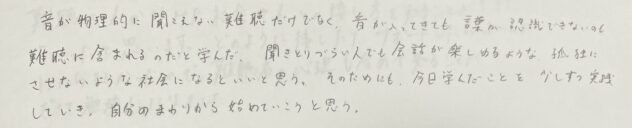 音が物理的に聞こえない難聴だけでなく、音が入ってきても言葉が認識できないのも
難聴に含まれるのだと学んだ。聞きとりづらい人でも会話が楽しめるような、孤独に
させないような社会になるといいと思う。そのためにも、今日学んだことを少しずつ実践
していき、自分のまわりから始めていこうと思う。